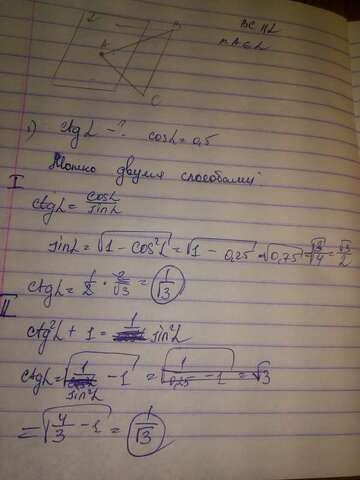 L
BC || L
A
B
m. A ∈ L
C
1) ctg L - ? cos L = 0,5
Можно двумя способами:
I
ctg L = cos L / sin L
sin L = √(1 - cos²L) = √(1 - 0,25) = √0,75 = √(3/4) = √3/2
ctg L = 1/2 · 2/√3 = 1/√3
II
ctg²L + 1 = 1/sin²L
ctg L = √(1/sin²L - 1) = √(1/0,25 - 1) = √3
= √(4/3 - 1) = 1/√3